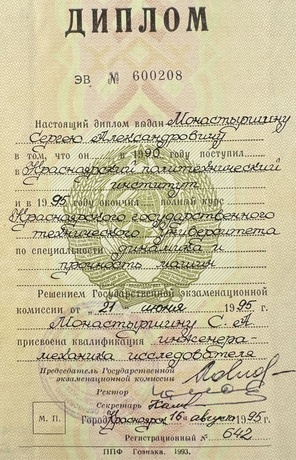 ДИПЛОМ
ЭВ № 600208
Настоящий диплом выдан Монастыршину
Сергею Александровичу
в том, что он в 1990 году поступил
в Красноярский политехнический
институт
и в 1995 году окончил полный курс
Красноярского государственного
технического университета
по специальности динамика и
прочность машин
Решением Государственной экзаменационной
комиссии от "21" июня 1995 г.
Монастыршину С. А
присвоена квалификация инженера-
механика исследователя
Председатель Государственной
экзаменационной комиссии
Ректор
Секретарь
Город Красноярск 16 августа 1995
М. П.
Регистрационный № 642
ППФ Гознака. 1993.